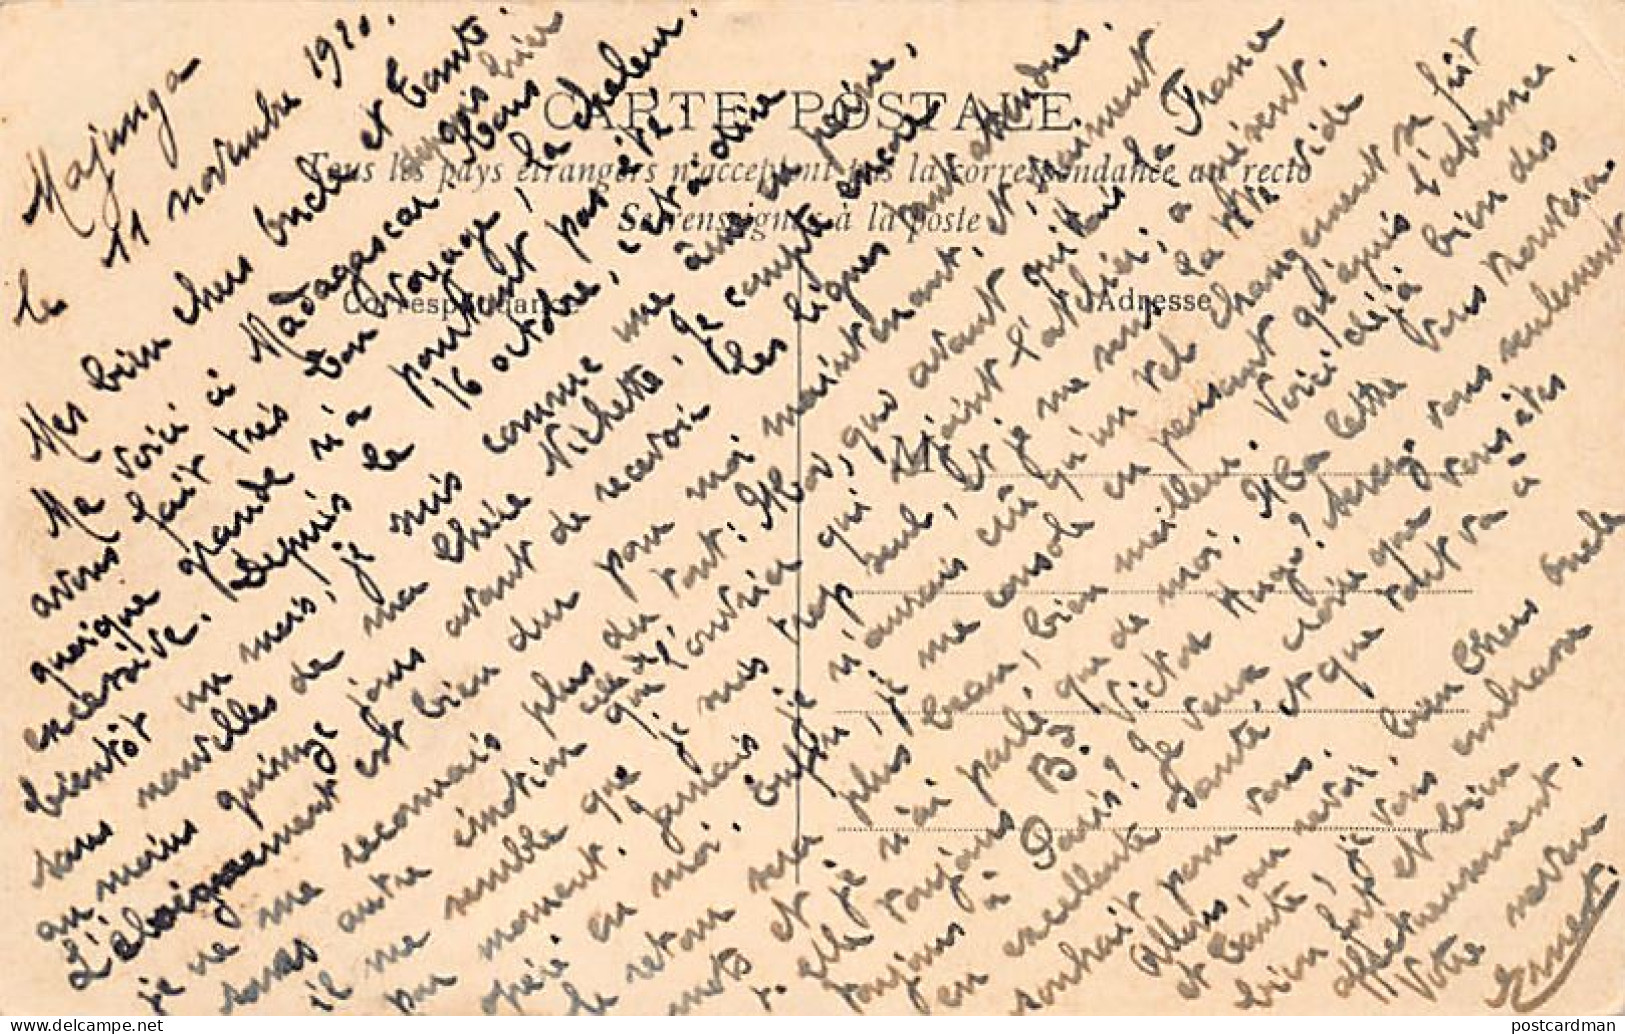 Majunga
le 11 novembre 1920.
Mes bien chers oncle et Tante.
Me voici à Madagascar depuis hier
avons fait très bon voyage, Nous
quoique grande n'a pourtant pas été la chaleur
excessive. Depuis le 16 octobre, c'est à dire
bientôt un mois, je suis comme une âme en peine,
sans nouvelles de ma chère Nichette. Je compte encore
au moins quinze jours avant de recevoir les lignes tant attendues.
L'éloignement est bien dur pour moi maintenant, et vraiment
je ne me reconnais plus du tout. Moi, qui avant quittais la France
sans autre émotion que celle de l'ouvrier qui rejoint l'atelier, à présent
il me semble que je suis trop seul, et je me sens la tête vide
par moment. Jamais je n'aurais crû qu'un tel changement se fût
opéré en moi. Enfin, je me console en pensant qu'après l'absence
le retour sera plus beau, bien meilleur. Voici déjà bien des
mots et je n'ai parlé que de moi. Ma lettre vous trouvera
t-elle toujours B. Victor Hugo? Serez-vous seulement
toujours à Paris? Je veux croire que vous êtes
en excellente santé, et que tout va à
souhait pour vous.
Allons, au revoir, bien chers oncle
et tante, je vous embrasse
bien fort et bien
affectueusement.
Votre neveu
Ernest.
CARTE POSTALE
Tous les pays étrangers n'acceptent pas la correspondance au recto
Se renseigner à la poste
Correspondance
Adresse
M
postcardman